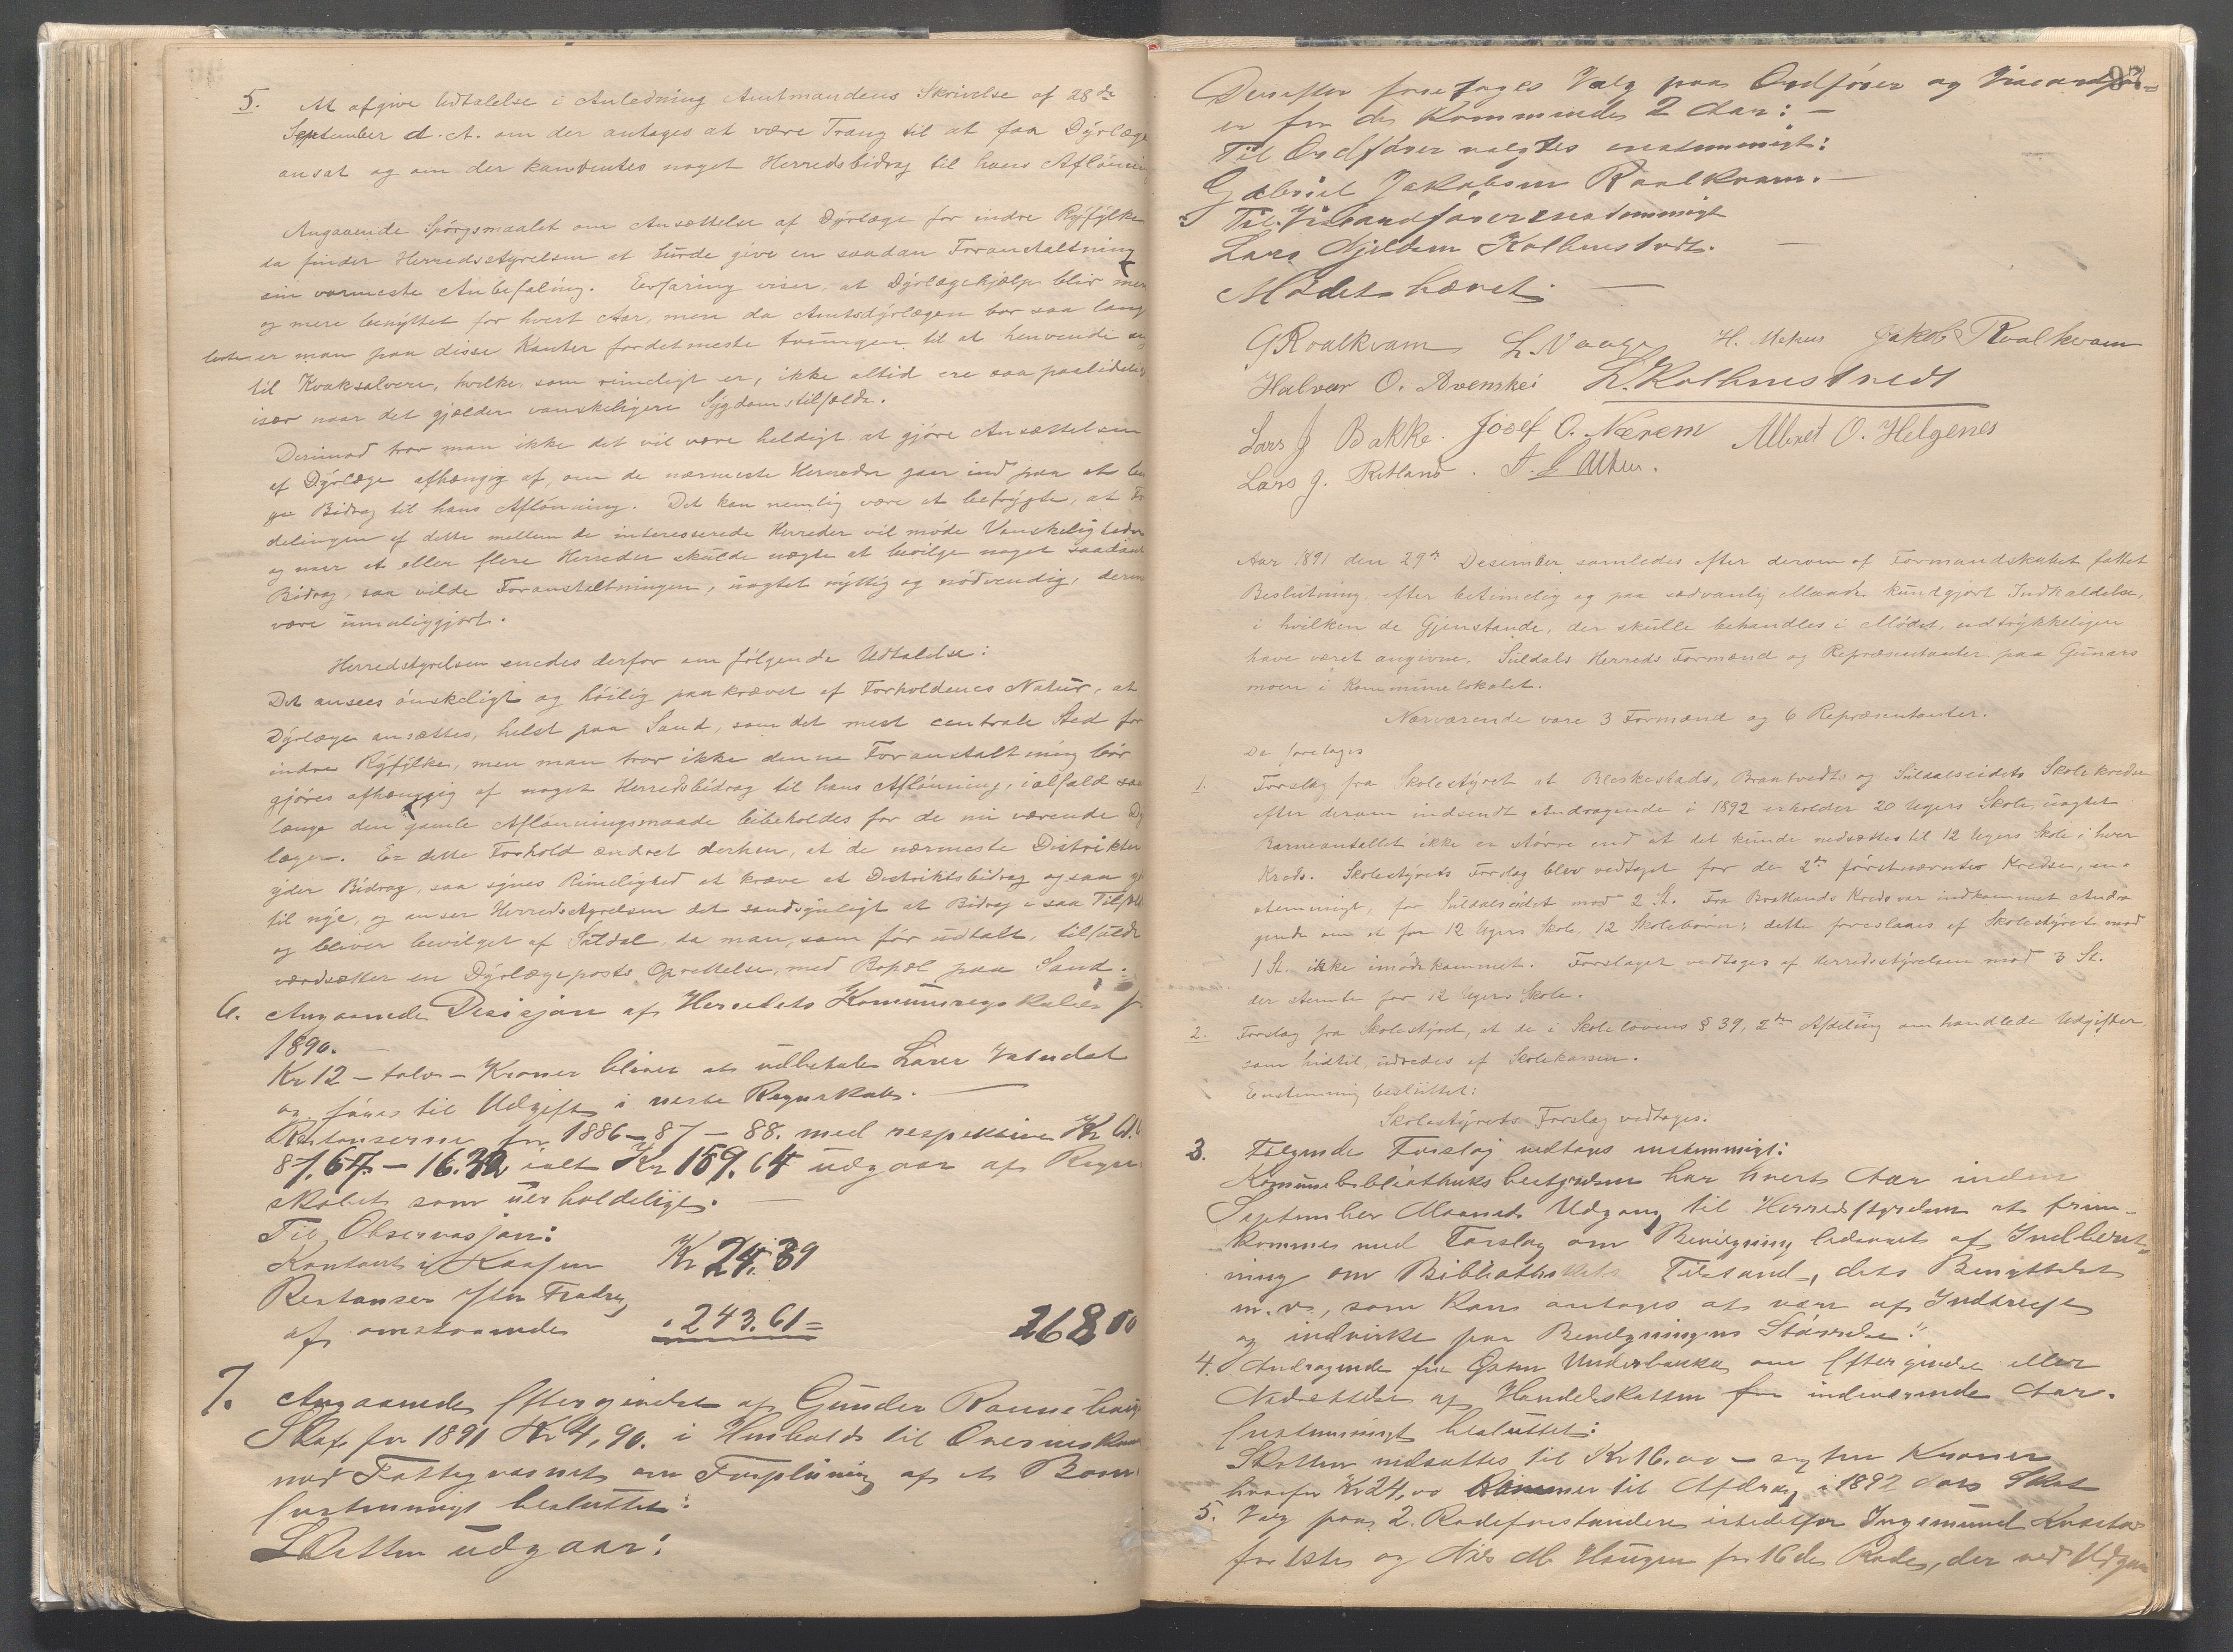 5. At afgive Udtalelse i Anledning Amtmandens Skrivelse af 28de
September d. A. om der antages at være Trang til at faa Dyrlæge
ansat og om der kan ventes noget Herredsbidrag til hans Aflønnin
Angaaende Spørgsmaalet om Ansættelse af Dyrlæge for indre Ryfylke
da finder Herredsstyrelsen at burde give en saadan Foranstaltning
sin varmeste Anbefaling. Erfaring viser, at Dyrlægehjælp blir mer
og mere benyttet for hvert Aar, men da Amtsdyrlægen bor saa langt
borte er man paa disse Kanter fordetmeste tvungen til at henvende sig
til Kvaksalvere, hvilke, som rimeligt er, ikke altid ere saa paalidelige
især naar det gjælder vanskeligere Sygdomstilfælde.
Derimod tror man ikke det vil være heldigt at gjøre Ansættelsen
af Dyrlæge afhængig af, om de nærmeste Herreder gaar ind paa at
Bidrag til hans Aflønning. Det kan nemlig være at befrygte, at For
delingen af dette mellem de interesserede Herreder vil møde Vanskeligheder
og naar et eller flere Herreder skulde nægte at bevilge noget saadant
Bidrag, saa vilde Foranstaltningen, uagtet nyttig og nødvendig, derm
være umuliggjort.
Herredstyrelsen enedes derfor om følgende Udtalelse:
Det ansees ønskeligt og høilig paakrævet af Forholdenes Natur, at
Dyrlæge ansættes, helst paa Sand, som det mest centrale Sted for
indre Ryfylke, men man tror ikke denne Foranstaltning bør
gjøres afhængig af noget Herredsbidrag til hans Aflønning, ialfald saa
længe den gamle Aflønningsmaade bibeholdes for de nu værende Dy
læger. Er dette Forhold ændret derhen, at de nærmeste Distrikter
yder Bidrag, saa synes Rimelighed at kræve et Distriktsbidrag ogsaa
til nye, og anser Herredsstyrelsen det sandsynligt at Bidrag i saa Tilfæld
og bliver bevilget af Suldal, da man, som før udtalt, tilfulde
værdsætter en Dyrlægeposts Oprettelse, med Bopæl paa Sand.
6. Angaaende Desisjon af Herredets Komuneregnskaber f
1890.
Kr 12 - tolv - Kroner bliver at udbetale Lærer Vatndal
og føres til Udgift i næste Regnskab.
Restanserne for 1886 - 87 - 88. med respektive Kr
87.67 - 16.30, ialt Kr 159.64 udgaar af Regn
skabet som uerholdelige.
Til Observasjon:
Kontant i Kassen Kr 24.39
Restanser efter Fradrag
af omstaaende " 243.61 = 268 00
7. Angaaende Eftergivelse af Gunder
Skat for 1891 Kr 4,90. i Henhold til
med Fattigvæsnet om Forpleining af et Barn
Enstemmigt besluttet:
Skatten udgaar:
Derefter foretoges Valg paa Ordfører og Viseordfør=
er for de kommende 2 Aar: -
Til Ordfører valgtes enstemmigt:
Gabriel Jakobsen Roalkvam. -
Til Viseordfører enstemmigt
Lars Kolbenstvedt. -
Mødet hævet. -
GRoalkvam L. Vaage H. Mehus Jakob Roalkvam
Halvar O. Kolbenstvedt
Lars J Bakke. Josef O. Nærem Albret O. Helgenes
Lars J. Ritland.
Aar 1891 den 29de Desember samledes efter derom af Formandskabet fattet
Beslutning, efter betimelig og paa sædvanlig Maade kundgjort Indkaldelse,
i hvilken de Gjenstande, der skulle behandles i Mødet, udtrykkeligen
have været angivne, Suldals Herreds Formænd og Repræsentanter paa Gunars
moen i Kommunelokalet.
Nærværende vare 3 Formænd og 6 Repræsentanter.
Da foretoges
1. Forslag fra Skolestyret at Bleskestads, Brantvedts og Suldalseidets Skolekredse
efter derom indsendt Andragende i 1892 erholder 20 Ugers Skole, uagtet
Barneantallet ikke er større end at det kunde nedsættes til 12 Ugers Skole i hver
Kreds. Skolestyrets Forslag blev vedtaget for de 2de førstnævnte Kredse, en=
stemmigt, for Suldalseidet mod 2 St. Fra Bratlands Kreds var indkommet Andra
gende om at faa 12 Ugers Skole, 12 Skolebørn; dette foreslaaes af Skolestyret mod
1 St. ikke imødekommet. Forslaget vedtoges af Herredsstyrelsen mod 3 St.
der stemte for 12 Ugers Skole.
2. Forslag fra Skolestyret, at de i Skolelovens § 39, 2den Afdeling omhandlede Udgifter,
som hidtil, udredes af Skolekassen.
Enstemmig besluttet:
Skolestyrets Forslag vedtages.
3. Følgende Forslag vedtoges enstemmigt:
"Komunebibliotheksbestyrelsen har hvert Aar inden
September Maaneds Udgang til Herredsstyrelsen at frem-
komme med Forslag om Bevilgning ledsaget af Indberet=
ning om Bibliothekets Tilstand, dets Benyttelse
m.v., som kan antages at være af Indteresse
og indvirke paa Bevilgningens Størrelse."
4. Andragende fra Underbakke om Eftergivelse eller
Nedsættelse af Handelsskatten for indeværende Aar.
Enstemmigt besluttet:
Skatten nedsættes til Kr 16.00 - seksten Kroner
hvorfor Kr 24,00 kommer til Afdrag i 1892 aars Skat
5. Valg paa 2. Rodeforstandere istedetfor Ingemund
for 1ste og Nils M. Haugen for 16de Rode, der ved Udgan